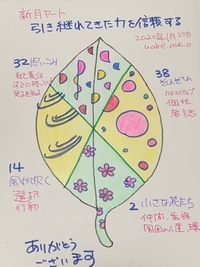 新月アート
引き継れてきた力を信頼する
2020年1月25日
32 思いこみ
38 それぞれ
個性
14
風が吹く
選択
行動
2 小さな花たち
仲間、家族
周囲の人達
ありがとう
ございます